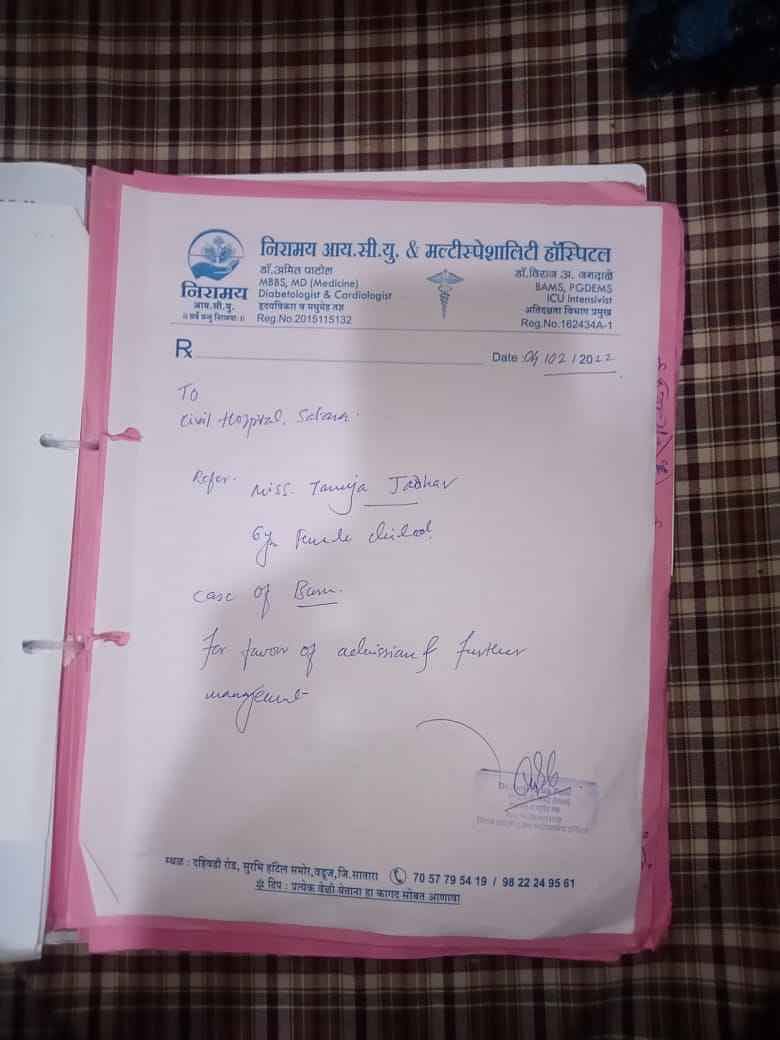 निरामय आय.सी.यु. & मल्टीस्पेशालिटी हॉस्पिटल
निरामय
आय.सी.यु.
॥ सर्वे सन्तु निरामयाः ॥
डॉ.अमित पाटोल
MBBS, MD (Medicine)
Diabetologist & Cardiologist
हृदयविकार व मधुमेह तज्ञ
Reg.No.2015115132
डॉ.विराज अ. जगदाळे
BAMS, PGDEMS
ICU Intensivist
अतिदक्षता विभाग प्रमुख
Reg.No.162434A-1
Rx Date 04/02/2022
To
Civil Hospital, Satara.
Refer. Miss. Tanuja Jadhav
6yr Female
case of Burn.
For favor of admission & further
management
स्थळ : दहिवडी रोड, सुरभि हॉटेल समोर,वडूज,जि.सातारा 70 57 79 54 19 / 98 22 24 95 61
टिप : प्रत्येक वेळी येताना हा कागद सोबत आणावा